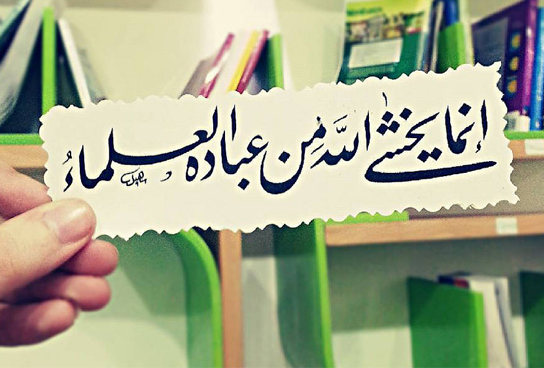 إنما يخشى اللَّهَ مِن عباده العلماءُ